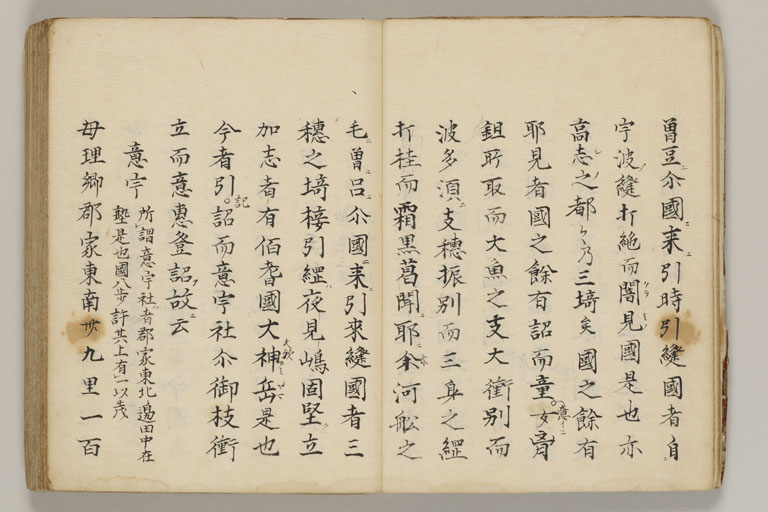 曽豆尒國来引時引縫國者自
宇波縫打絶而闇見國是也亦
髙志之都久乃三埼矣國之餘有
耶見者國之餘有詔而童女胷
鉏所取而大魚之支大衝別而
波多湏支穂振別而三身之綱
打桂而霜黒葛聞耶尒河舩之
毛曽呂尒國来引来縫國者三
穗之埼椄引綱夜見嶋固堅立
加志者有伯耆國大神岳是也
今者引詔而意宇社尒御杖衝
立而意惠登詔故云
意宇 所謂意宇社者郡家東北邊田中在
塾是也國八歩許其上有一以茂
母理郷郡家東南卅九里一百